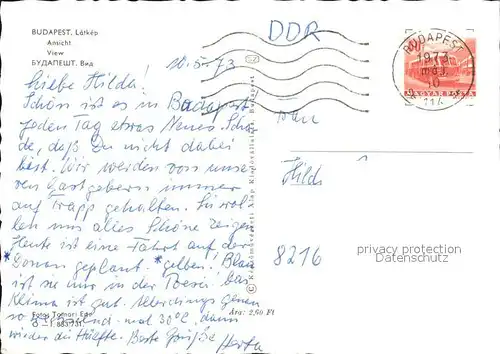 BUDAPEST, Látkép
Ansicht
View
БУДАПЕШТ, Вид
DDR
10.5.73
BUDAPEST
1973
MÁJ.
10
Liebe Hilda!
Schön ist es in Budapest
jeden Tag etwas Neues. Scha-
de, daß Du nicht dabei
bist. Wir werden von unse-
ren Gastgebern immer
auf Trapp gehalten. Sie wol-
len uns alles Schöne zeigen
Heute ist eine Fahrt auf der
*Donau geplant. *gelben! Blau
ist sie nur in der Poesie. Das
Klima ist gut. Allerdings
mal 30°C, dann
wieder die Hälfte. Beste Grüße Herta
Frau
Hild
8216
privacy protection
Datenschutz
Képzőművészeti Alap Kiadóvállalata, Budapest
Fotos Tomori Ede
Ára: 2,50 Ft